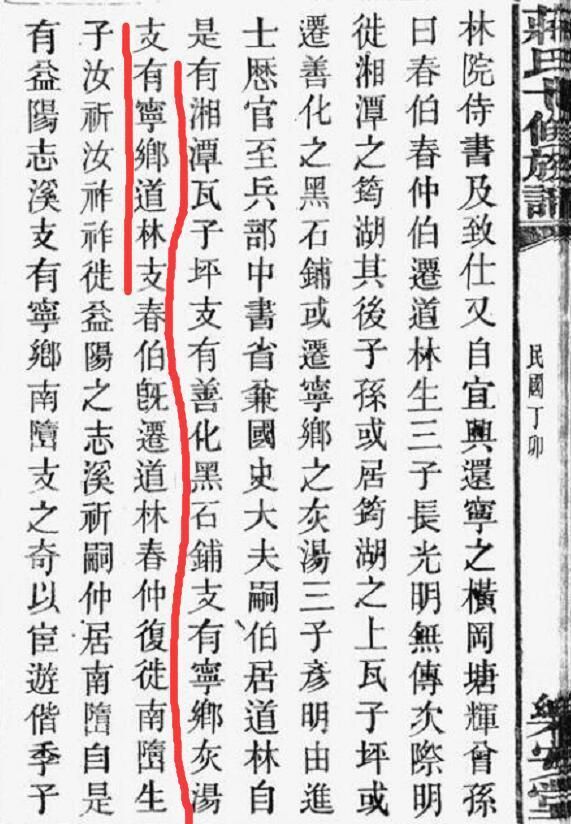 蔣氏十修族譜
民國丁卯
樂安堂
林院侍書及致仕又自宜興還寧之橫岡塘輝曾孫
曰春伯春仲伯遷道林生三子長光明無傳次際明
徙湘潭之筠湖其後子孫或居筠湖之上瓦子坪或
遷善化之黑石鋪或遷寧鄉之灰湯三子彥明由進
士歷官至兵部中書省兼國史大夫嗣伯居道林自
是有湘潭瓦子坪支有善化黑石鋪支有寧鄉灰湯
支有寧鄉道林支春伯旣遷道林春仲復徙南㙐生
子汝祈汝祚祚徙益陽之志溪祈嗣仲居南㙐自是
有益陽志溪支有寧鄉南㙐支之奇以宦遊偕季子